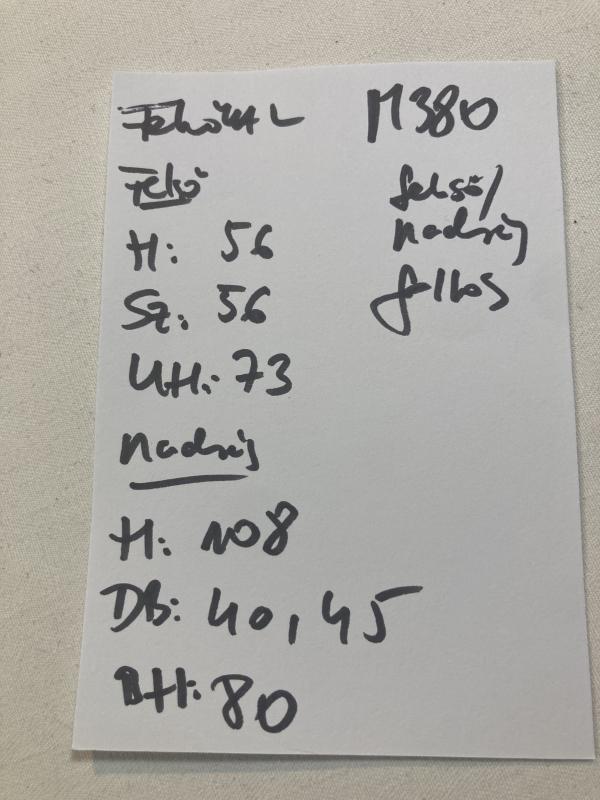 M380
Felső
H: 56
Sz: 56
UH: 73
nadrág
H: 108
DB: 40, 45
BH: 80
felső/
nadrág
foltos